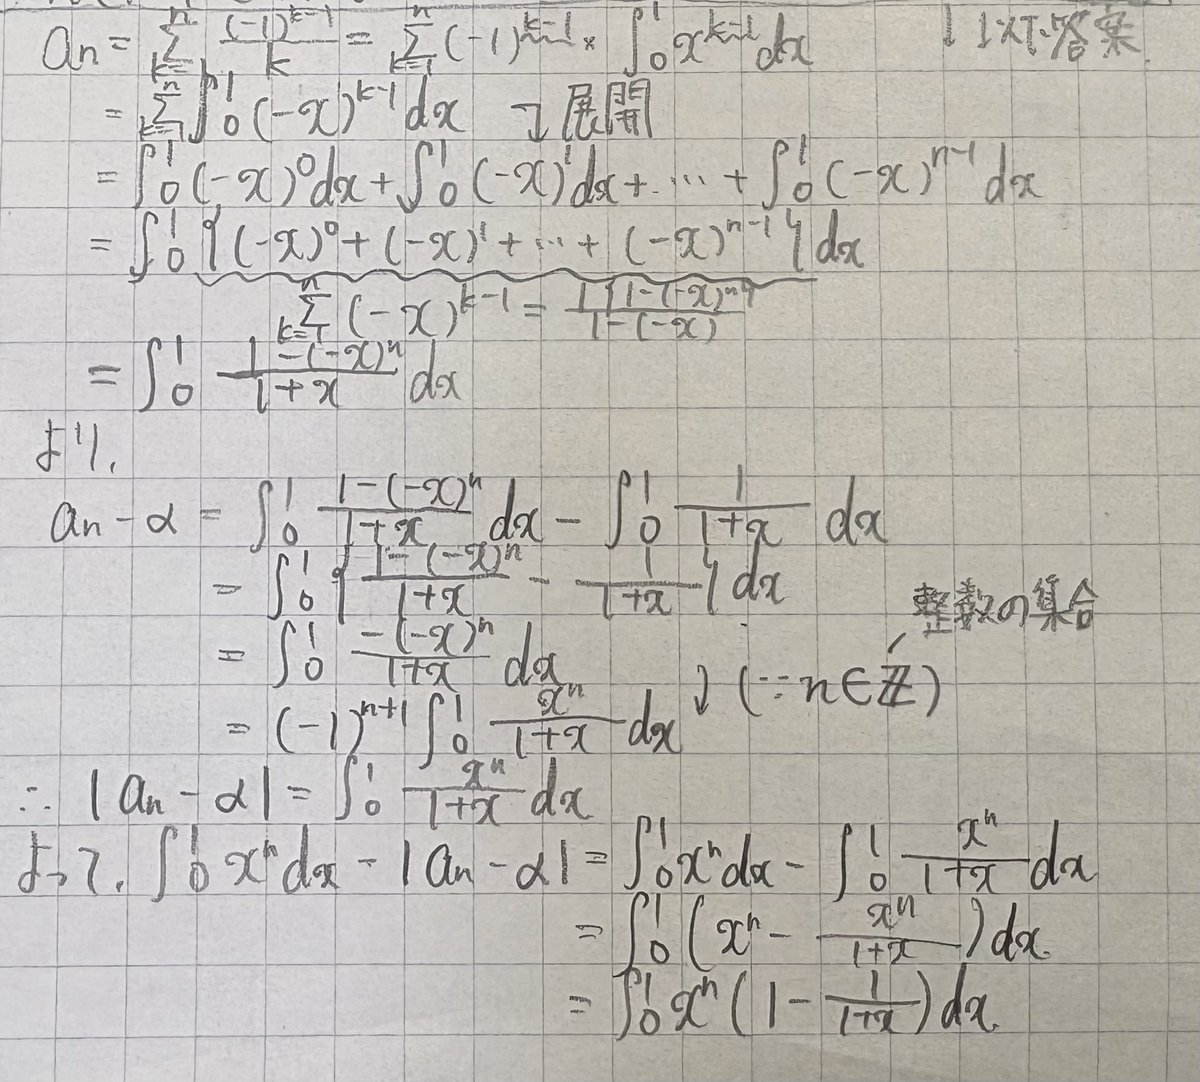 aₙ = Σ_{k=1}^{n} (-1)^{k-1}/k = Σ_{k=1}^{n} (-1)^{k-1} × ∫₀¹ x^{k-1} dx ↓以下答案
= Σ_{k=1}^{n} ∫₀¹ (-x)^{k-1} dx ↓展開
= ∫₀¹ (-x)⁰ dx + ∫₀¹ (-x)¹ dx + … + ∫₀¹ (-x)^{n-1} dx
= ∫₀¹ {(-x)⁰ + (-x)¹ + … + (-x)^{n-1}} dx
Σ_{k=1}^{n} (-x)^{k-1} = 1{1-(-x)ⁿ}/(1-(-x))
= ∫₀¹ (1-(-x)ⁿ)/(1+x) dx
より,
aₙ - α = ∫₀¹ (1-(-x)ⁿ)/(1+x) dx - ∫₀¹ 1/(1+x) dx
= ∫₀¹ {(1-(-x)ⁿ)/(1+x) - 1/(1+x)} dx
整数の集合
= ∫₀¹ -(-x)ⁿ/(1+x) dx ↓(∵n∈ℤ)
= (-1)^{n+1} ∫₀¹ xⁿ/(1+x) dx
∴ |aₙ - α| = ∫₀¹ xⁿ/(1+x) dx
よって, ∫₀¹ xⁿ dx - |aₙ - α| = ∫₀¹ xⁿ dx - ∫₀¹ xⁿ/(1+x) dx
= ∫₀¹ (xⁿ - xⁿ/(1+x)) dx
= ∫₀¹ xⁿ (1 - 1/(1+x)) dx